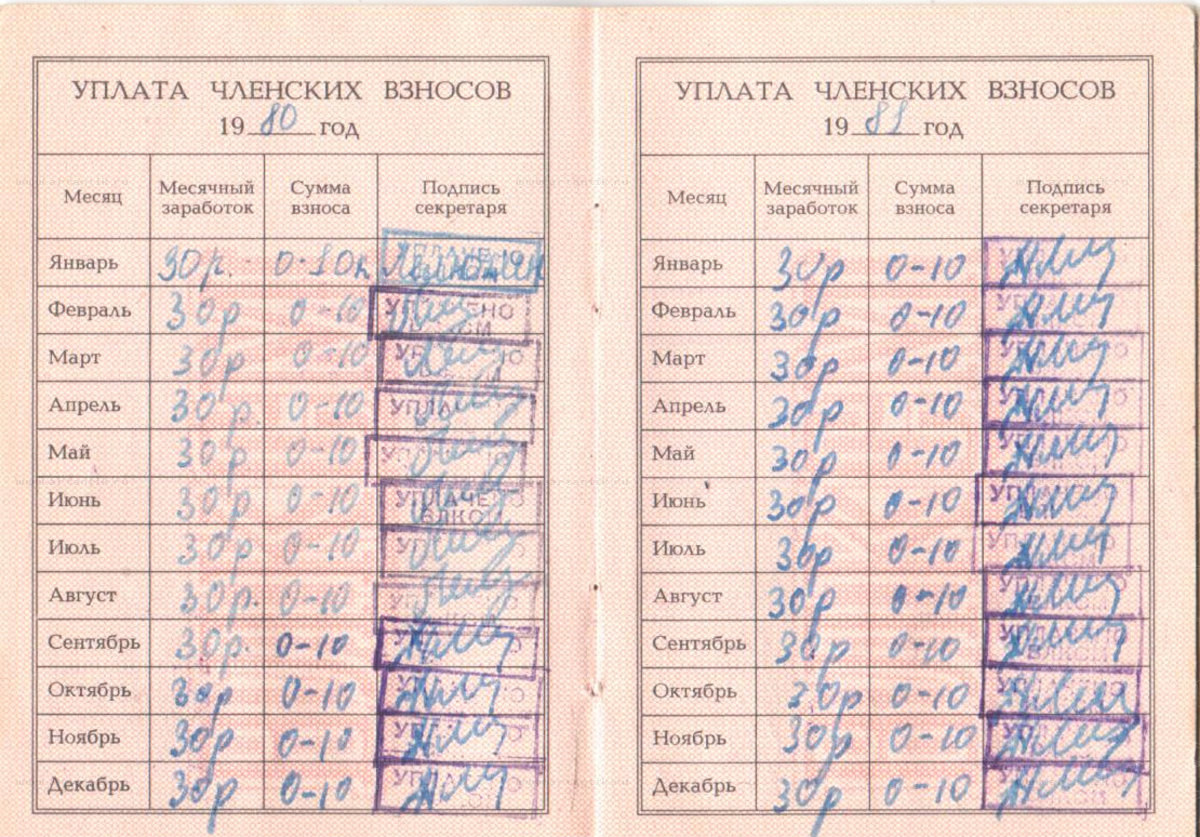 УПЛАТА ЧЛЕНСКИХ ВЗНОСОВ
1980 год
Месяц Месячный заработок Сумма взноса Подпись секретаря
Январь 30р. 0-10к УПЛАЧЕНО
Февраль 30р 0-10 УПЛАЧЕНО
Март 30р 0-10
Апрель 30р. 0-10 УПЛА
Май 30р 0-10
Июнь 30р 0-10 УПЛАЧЕНО
Июль 30р 0-10
Август 30р. 0-10
Сентябрь 30р. 0-10
Октябрь 30р 0-10
Ноябрь 30р 0-10
Декабрь 30р 0-10
УПЛАТА ЧЛЕНСКИХ ВЗНОСОВ
1981 год
Месяц Месячный заработок Сумма взноса Подпись секретаря
Январь 30р 0-10
Февраль 30р 0-10
Март 30р 0-10
Апрель 30р 0-10
Май 30р 0-10
Июнь 30р 0-10
Июль 30р 0-10
Август 30р 0-10
Сентябрь 30р 0-10
Октябрь 30р 0-10
Ноябрь 30р 0-10
Декабрь 30р 0-10